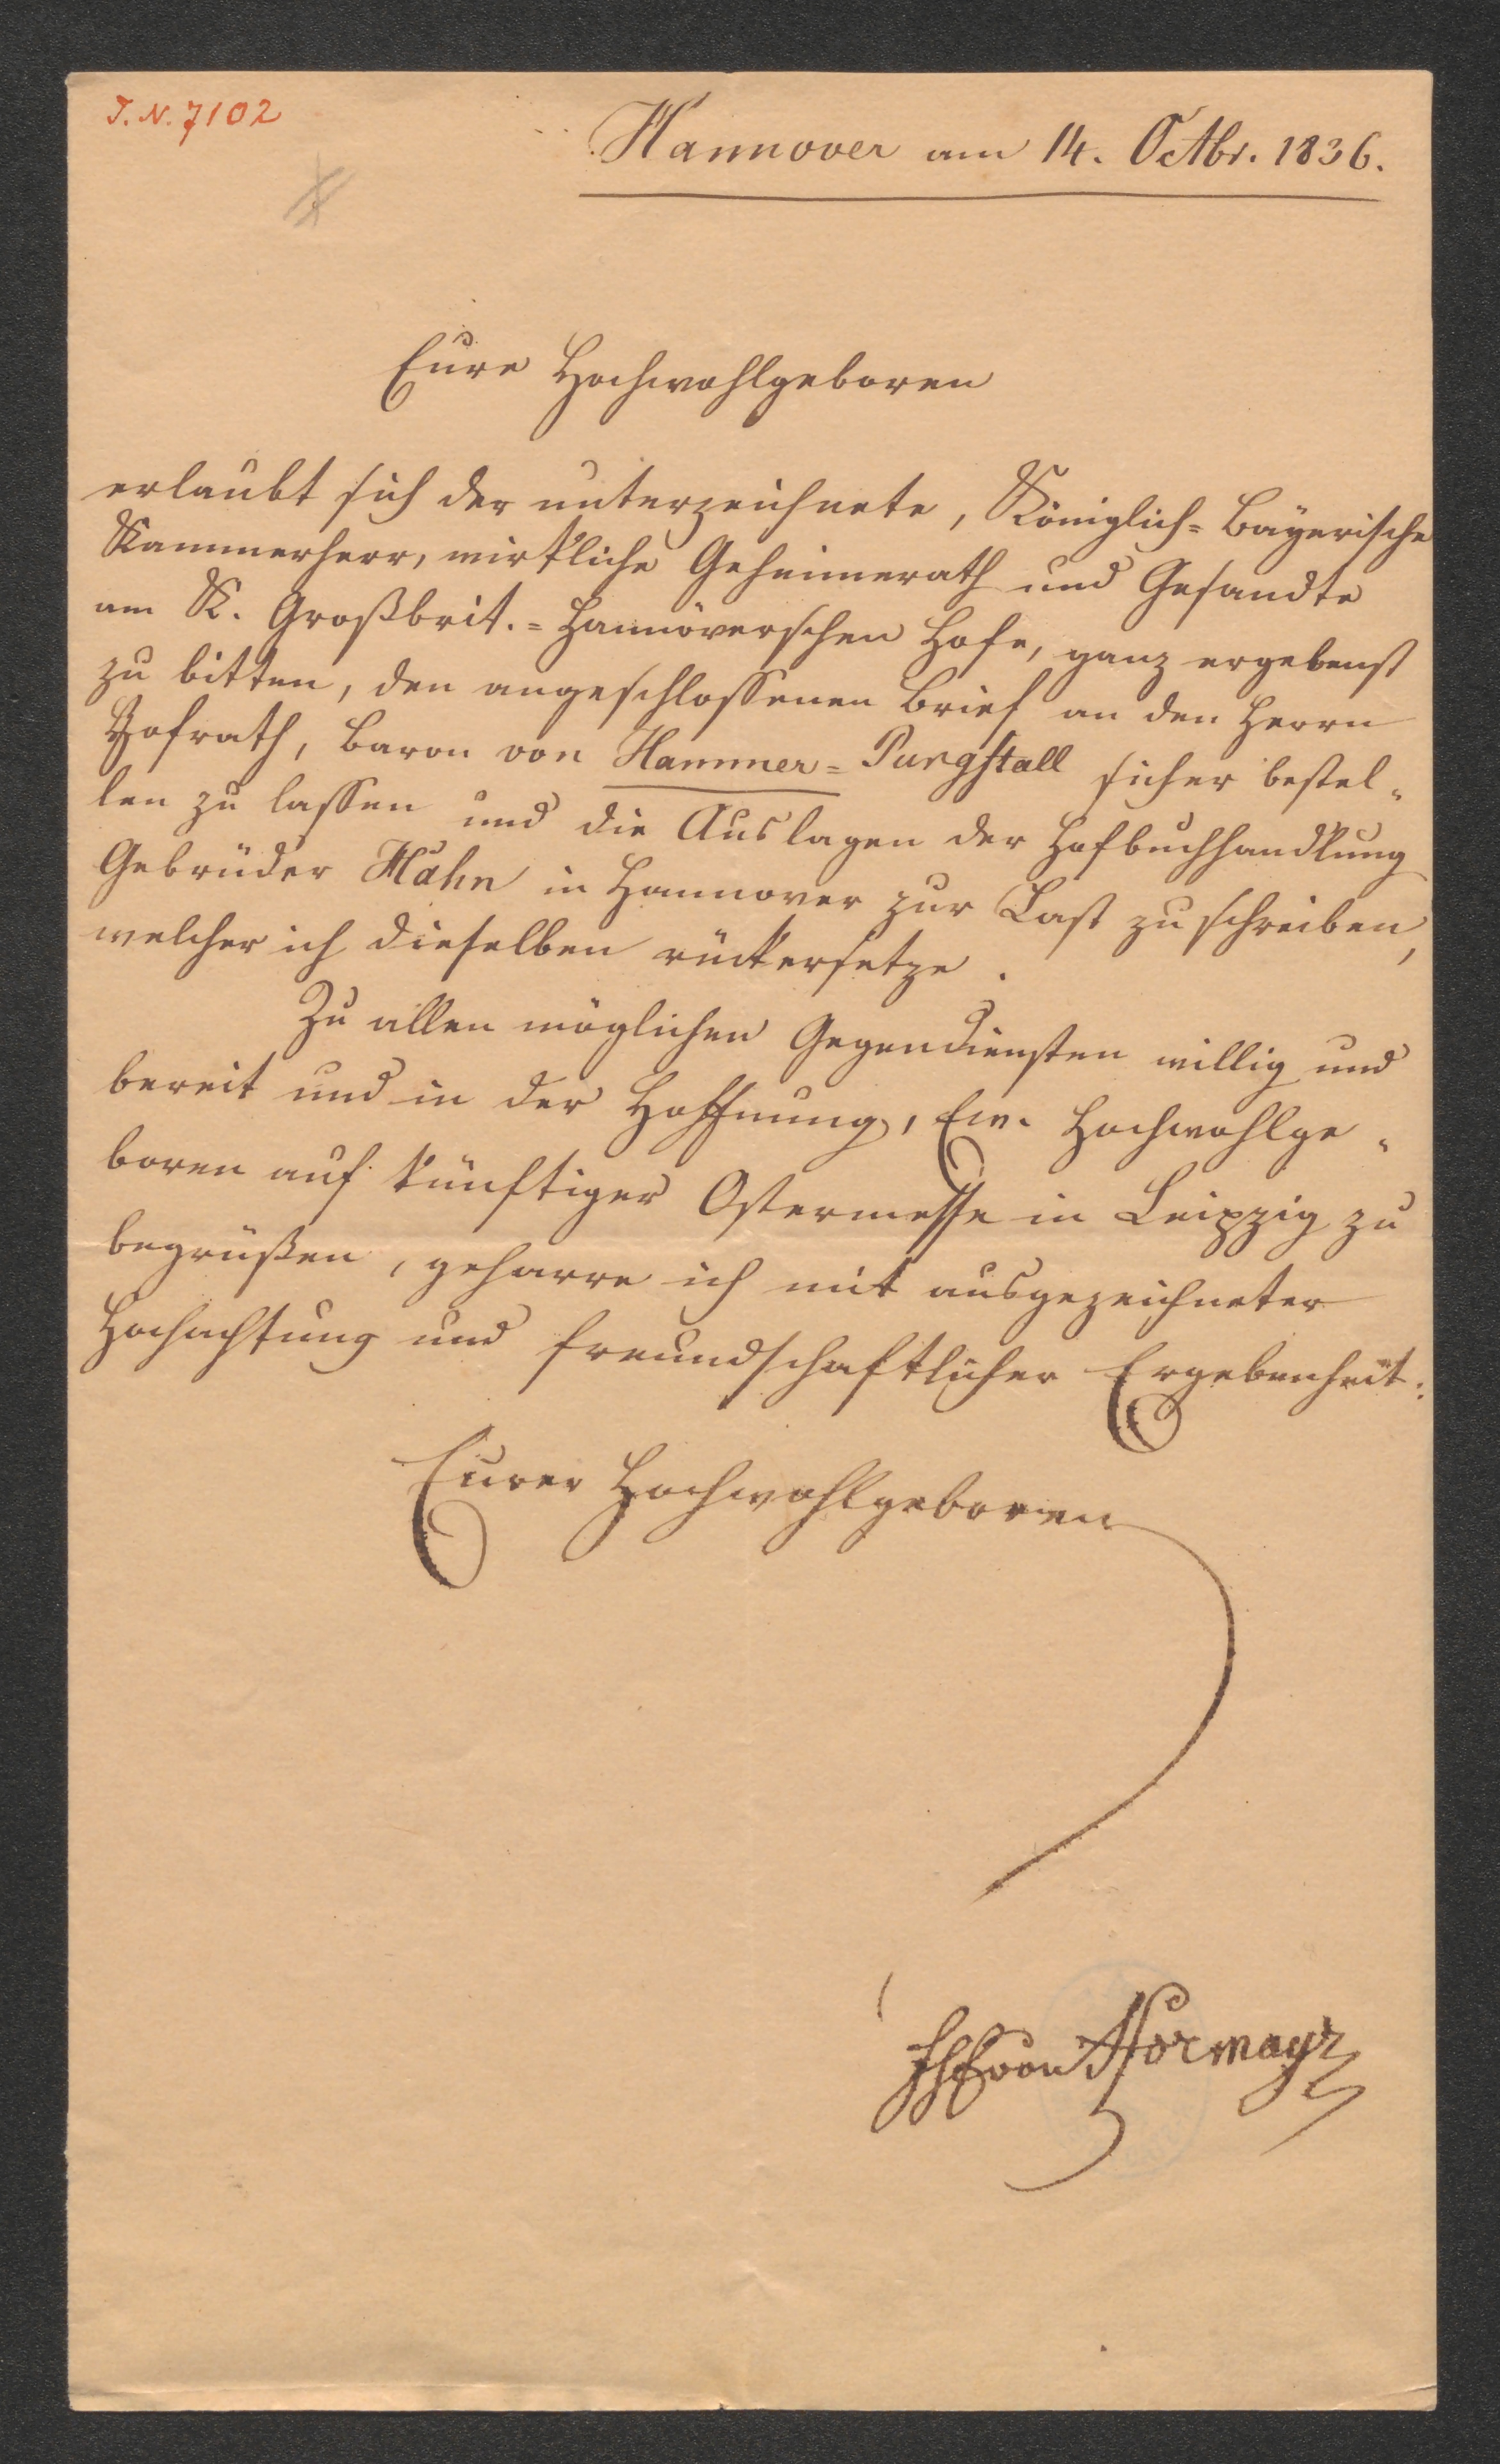 I. N. 7102
Hannover am 14. Octbr. 1836.
Eure Hochwohlgeboren
erlaubt sich der unterzeichnete, Königlich=Bayerische
Kammerherr, wirkliche Geheimerath und Gesandte
am K. Großbrit.=Hannöverschen Hofe, ganz ergebenst
zu bitten, den angeschlossenen Brief an den Herrn
Hofrath, Baron von Hammer=Purgstall sicher bestel=
len zu lassen und die Auslagen der Hofbuchhandlung
Gebrüder Hahn in Hannover zur Last zu schreiben,
welcher ich dieselben rückersetze.
Zu allen möglichen Gegendiensten willig und
bereit und in der Hoffnung, Ew. Hochwohlge=
boren auf künftiger Ostermesse in Leipzig zu
begrüßen, geharre ich mit ausgezeichneter
Hochachtung und freundschaftlicher Ergebenheit.
Eurer Hochwohlgeboren
von Hormayr